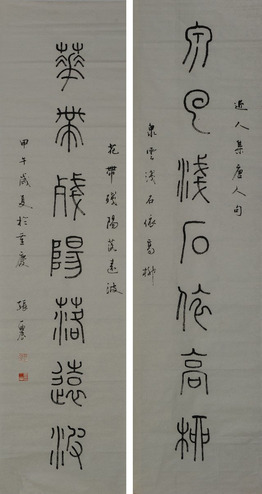 近人集唐人句
泉雲淺石依高柳
泉雲淺石依高柳
華帶殘陽落遠波
花帶殘陽落遠波
甲午歲夏於重慶 張農